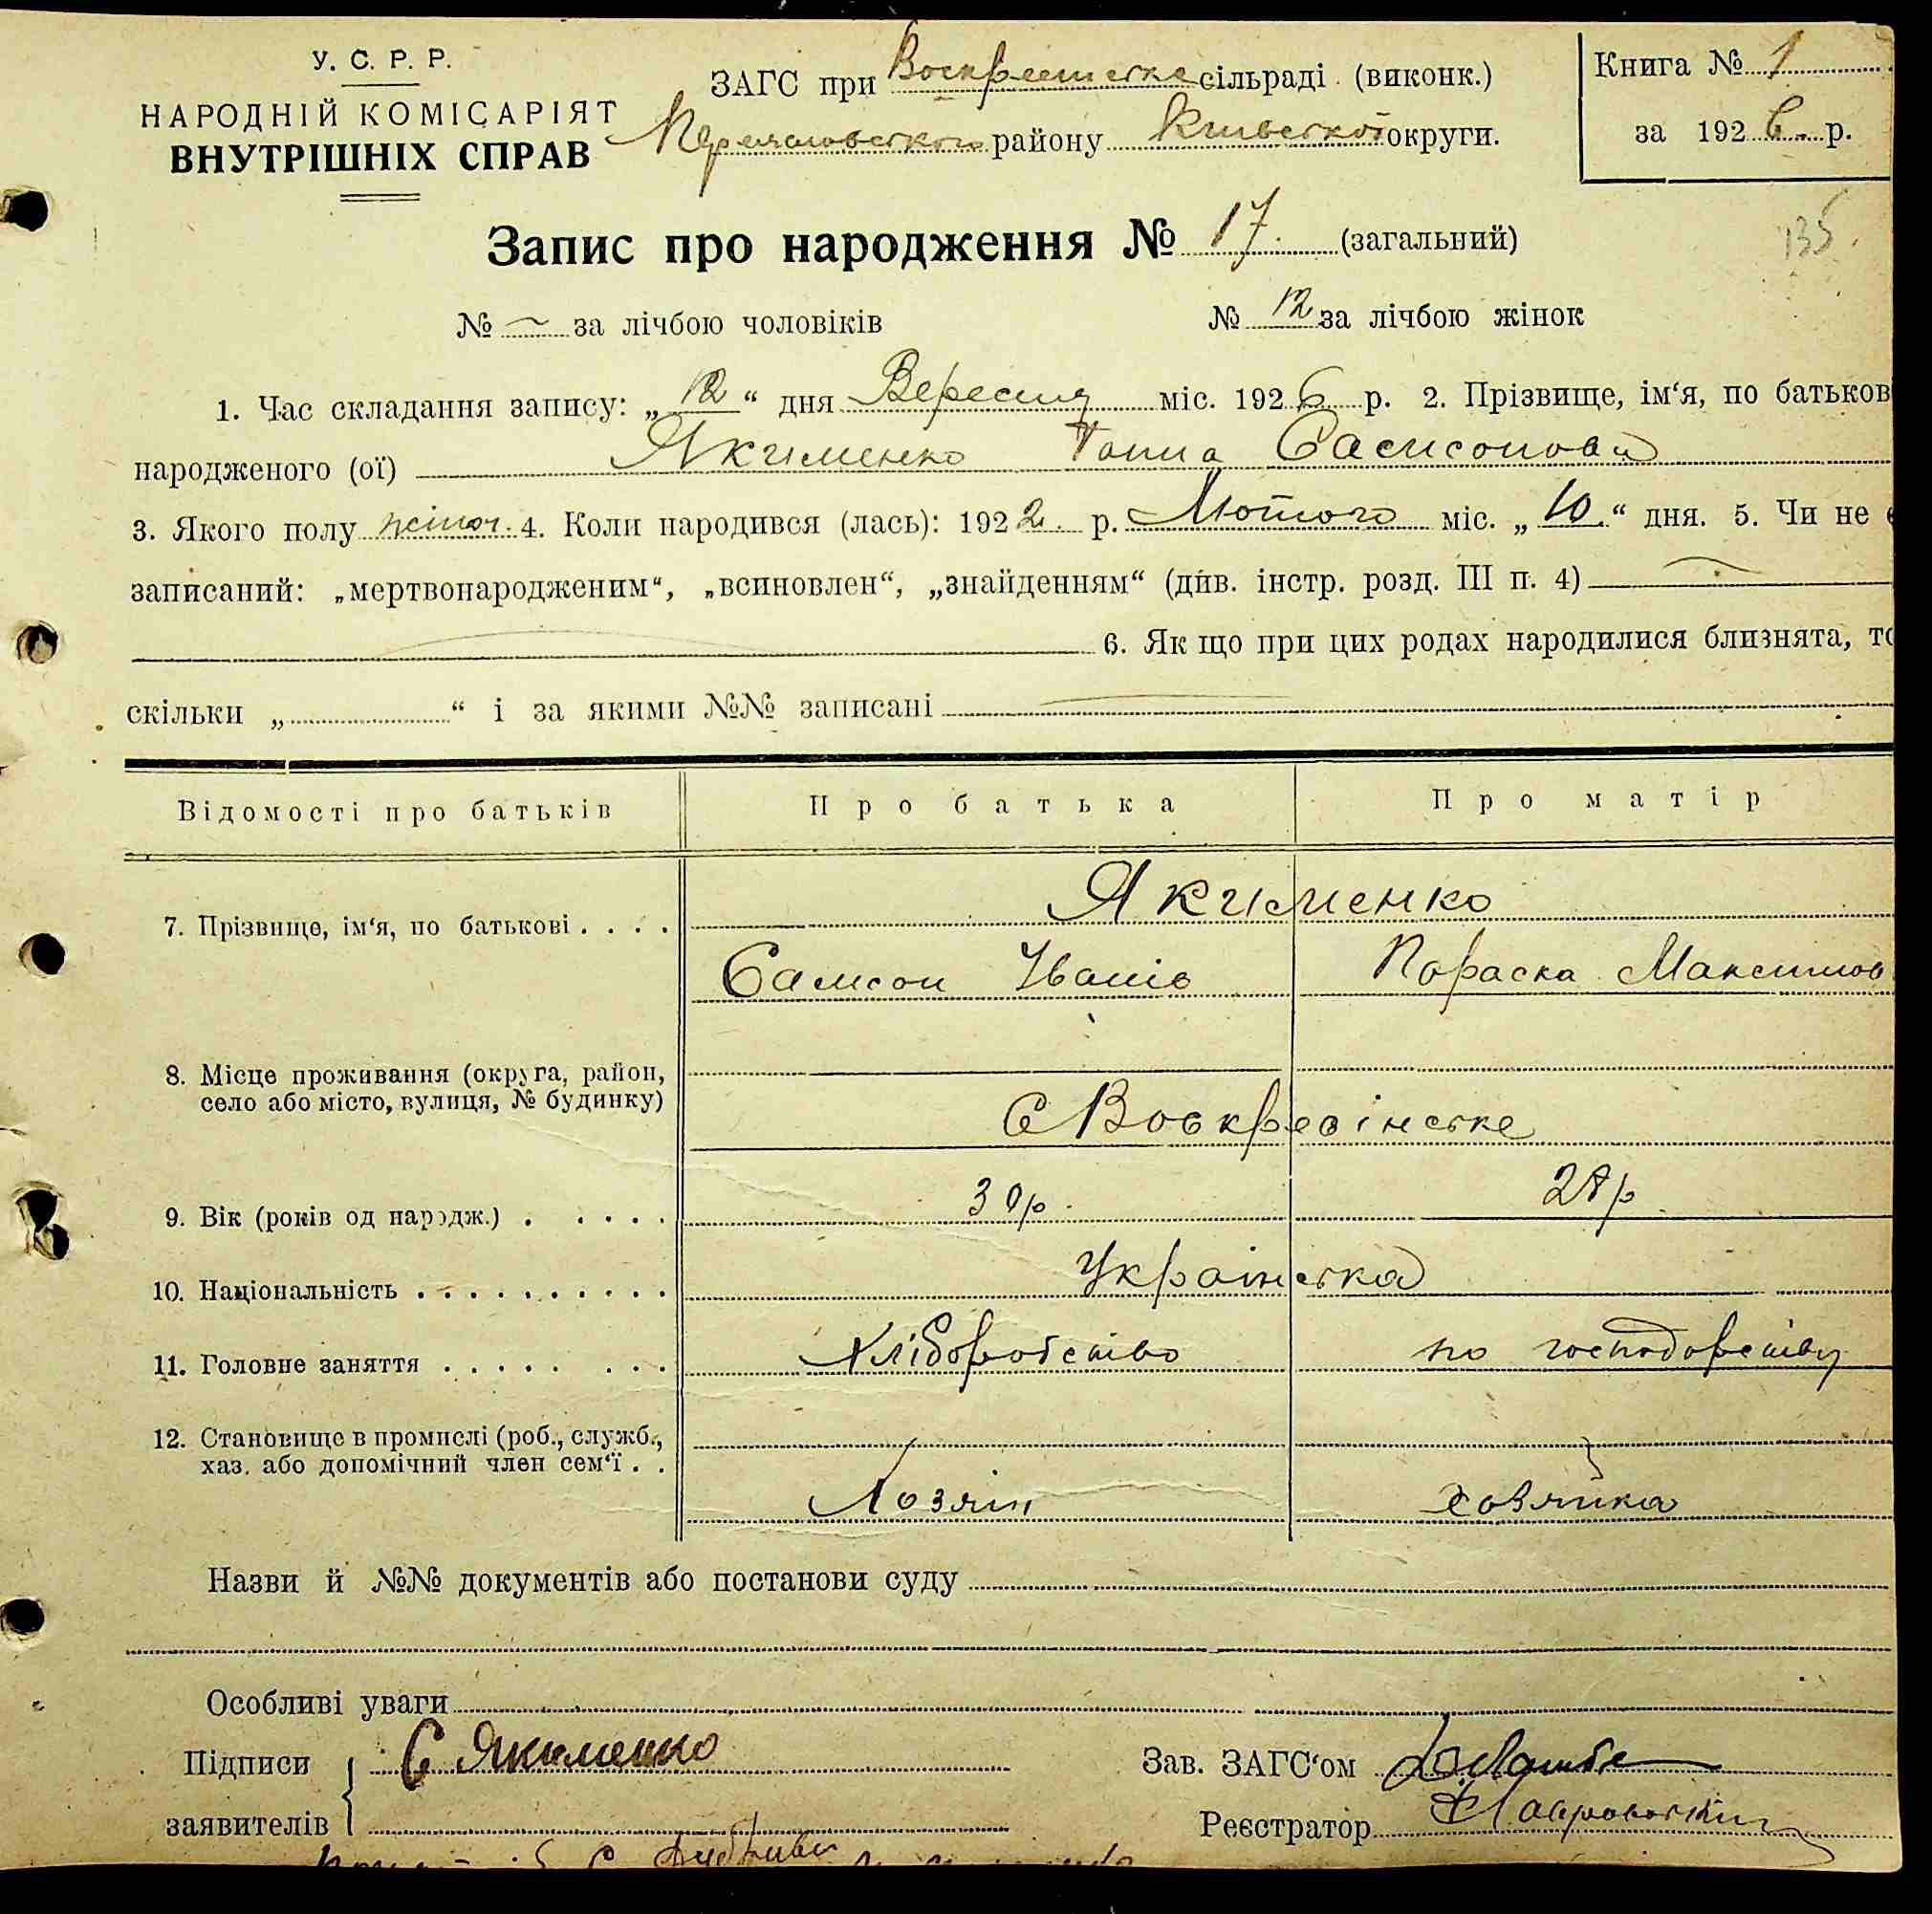 У. С. Р. Р.
НАРОДНІЙ КОМІСАРІЯТ
ВНУТРІШНІХ СПРАВ
ЗАГС при сільраді (виконк.)
району округи.
Книга № 1
за 1926 р.
135
Запис про народження № 17. (загальний)
№ — за лічбою чоловіків № 12 за лічбою жінок
1. Час складання запису: „12“ дня Вересня міс. 1926 р. 2. Прізвище, ім‘я, по батькові
народженого (ої) Якименко Ганна Самсонова
3. Якого полу жіноч. 4. Коли народився (лась): 1922 р. Лютого міс. „10“ дня. 5. Чи не є
записаний: „мертвонародженим“, „всиновлен“, „знайденням“ (див. інстр. розд. III п. 4)
6. Як що при цих родах народилися близнята, то
скільки „ “ і за якими №№ записані
Відомості про батьків Про батька Про матір
7. Прізвище, ім‘я, по батькові . . . . Якименко
Самсон Іванів Параска Максимов
8. Місце проживання (округа, район,
село або місто, вулиця, № будинку) С Воскресінське
9. Вік (років од народж.) . . . . . 30р. 28р
10. Національність . . . . . . . . . . Українська
11. Головне заняття . . . . . . . . Хліборобство по господарству
12. Становище в промислі (роб., служб.,
хаз. або допомічний член сем‘ї . . Хозяін хозяйка
Назви й №№ документів або постанови суду
Особливі уваги
Підписи С Якименко Зав. ЗАГС‘ом
заявителів Реєстратор